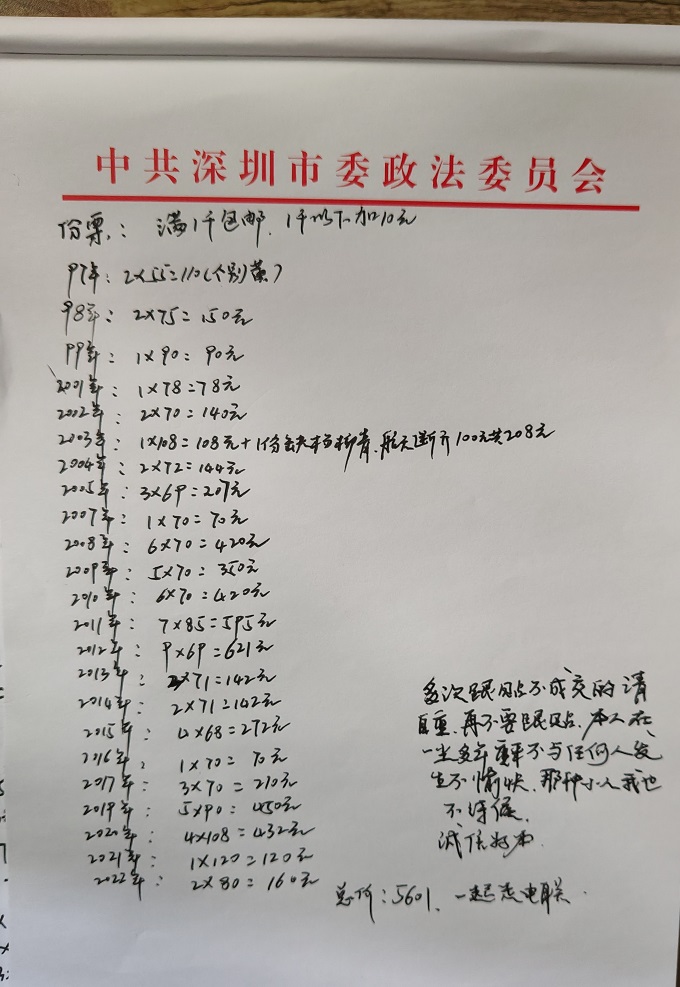 中共深圳市委政法委员会
份票: 满1千包邮、1千以下加10元
97年: 2×55=110(个别黄)
98年: 2×75=150元
99年: 1×90=90元
2001年: 1×78=78元
2002年: 2×70=140元
2003年: 1×108=108元+1份缺杨柳青、航天断齐100元共208元
2004年: 2×72=144元
2005年: 3×69=207元
2007年: 1×70=70元
2008年: 6×70=420元
2009年: 5×70=350元
2010年: 6×70=420元
2011年: 7×85=595元
2012年: 9×69=621元
2013年: 2×71=142元
2014年: 2×71=142元
2015年: 4×68=272元
2016年: 1×70=70元
2017年: 3×70=210元
2019年: 5×90=450元
2020年: 4×108=432元
2021年: 1×120=120元
2022年: 2×80=160元
多次跟因点不成交的请
自重、再不要跟因点、本人在
一尘多年 不与任何人发
生不愉快、那种小人我也
不
诚信为本
总价:5601、一起走电联.